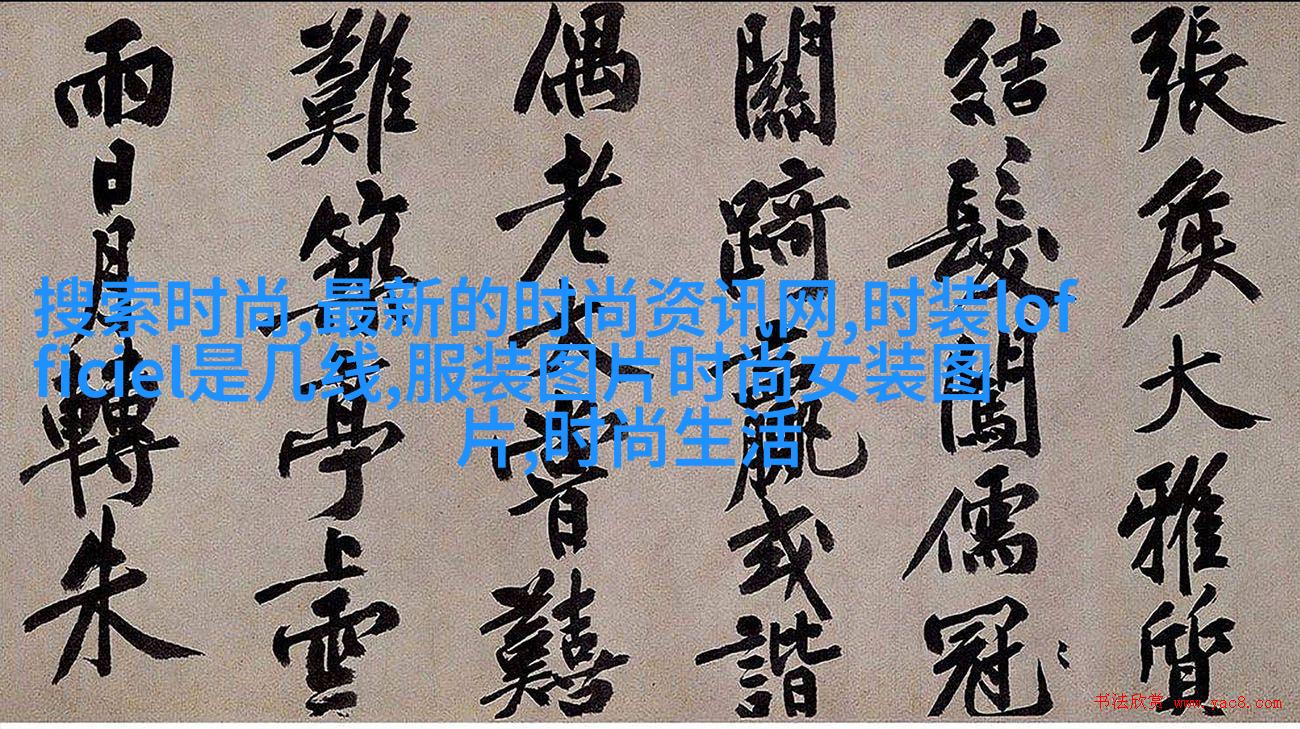 張侯大雅質
結髮闖儒冠
關踦或諧
偶老大嘗囏
難築亭上雲
雨日月轉朱
搜索时尚,最新的时尚资讯网,时装lof
ficiel是几线,服装图片时尚女装图
片,时尚生活
书法欣赏 www.yac8.com